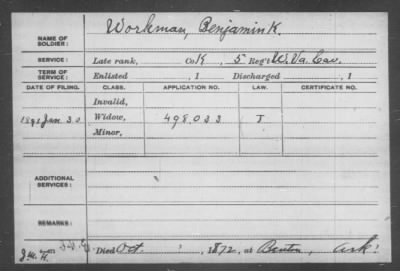 NAME OF SOLDIER: Workman, Benjamin K.
SERVICE: Late rank, Co K, 5 Reg't W. Va. Cav.
TERM OF SERVICE: Enlisted , 1 Discharged , 1
DATE OF FILING. CLASS. APPLICATION NO. LAW. CERTIFICATE NO.
Invalid,
1891 Jan 30 Widow, 498.033 I
Minor,
ADDITIONAL SERVICES:
REMARKS:
Died Oct. , 1872, at Benton, Ark.